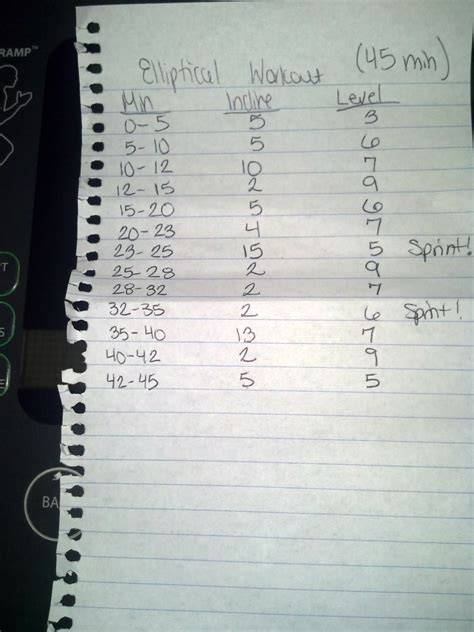 RAMP™
Elliptical Workout (45 min)
Min Incline Level
0-5 5 3
5-10 5 6
10-12 10 7
12-15 2 9
15-20 5 6
20-23 4 7
23-25 15 5 Sprint!
25-28 2 9
28-32 2 7
32-35 2 6 Sprint!
35-40 13 7
40-42 2 9
42-45 5 5
BA